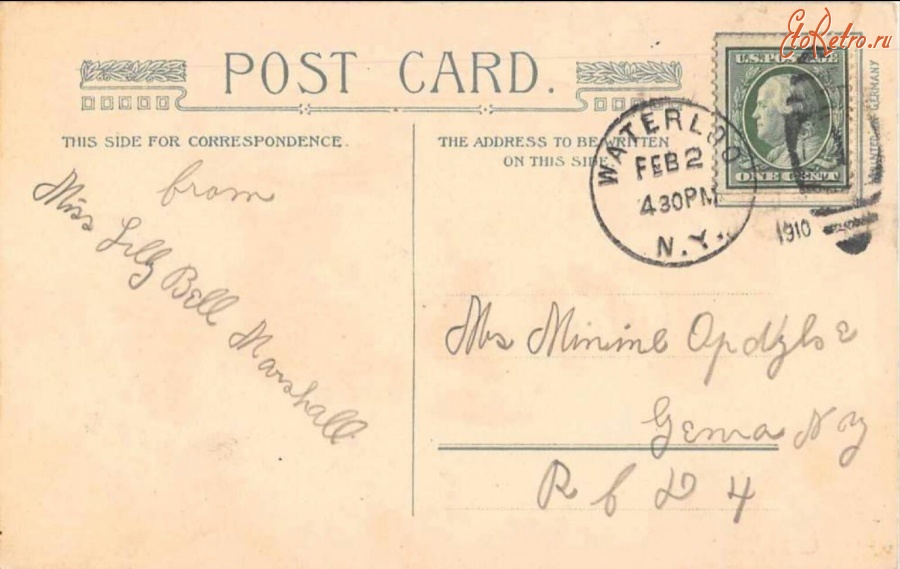 EtoRetro.ru
POST CARD.
THIS SIDE FOR CORRESPONDENCE.
THE ADDRESS TO BE WRITTEN
ON THIS SIDE
U.S. POSTAGE
ONE CENT
GERMANY
WATERLOO
FEB 2
4 30 PM
N.Y.
1910
from
Miss Lilly Bell Marshall
Mrs Minine Opdyke
Geneva N Y
R f D 4